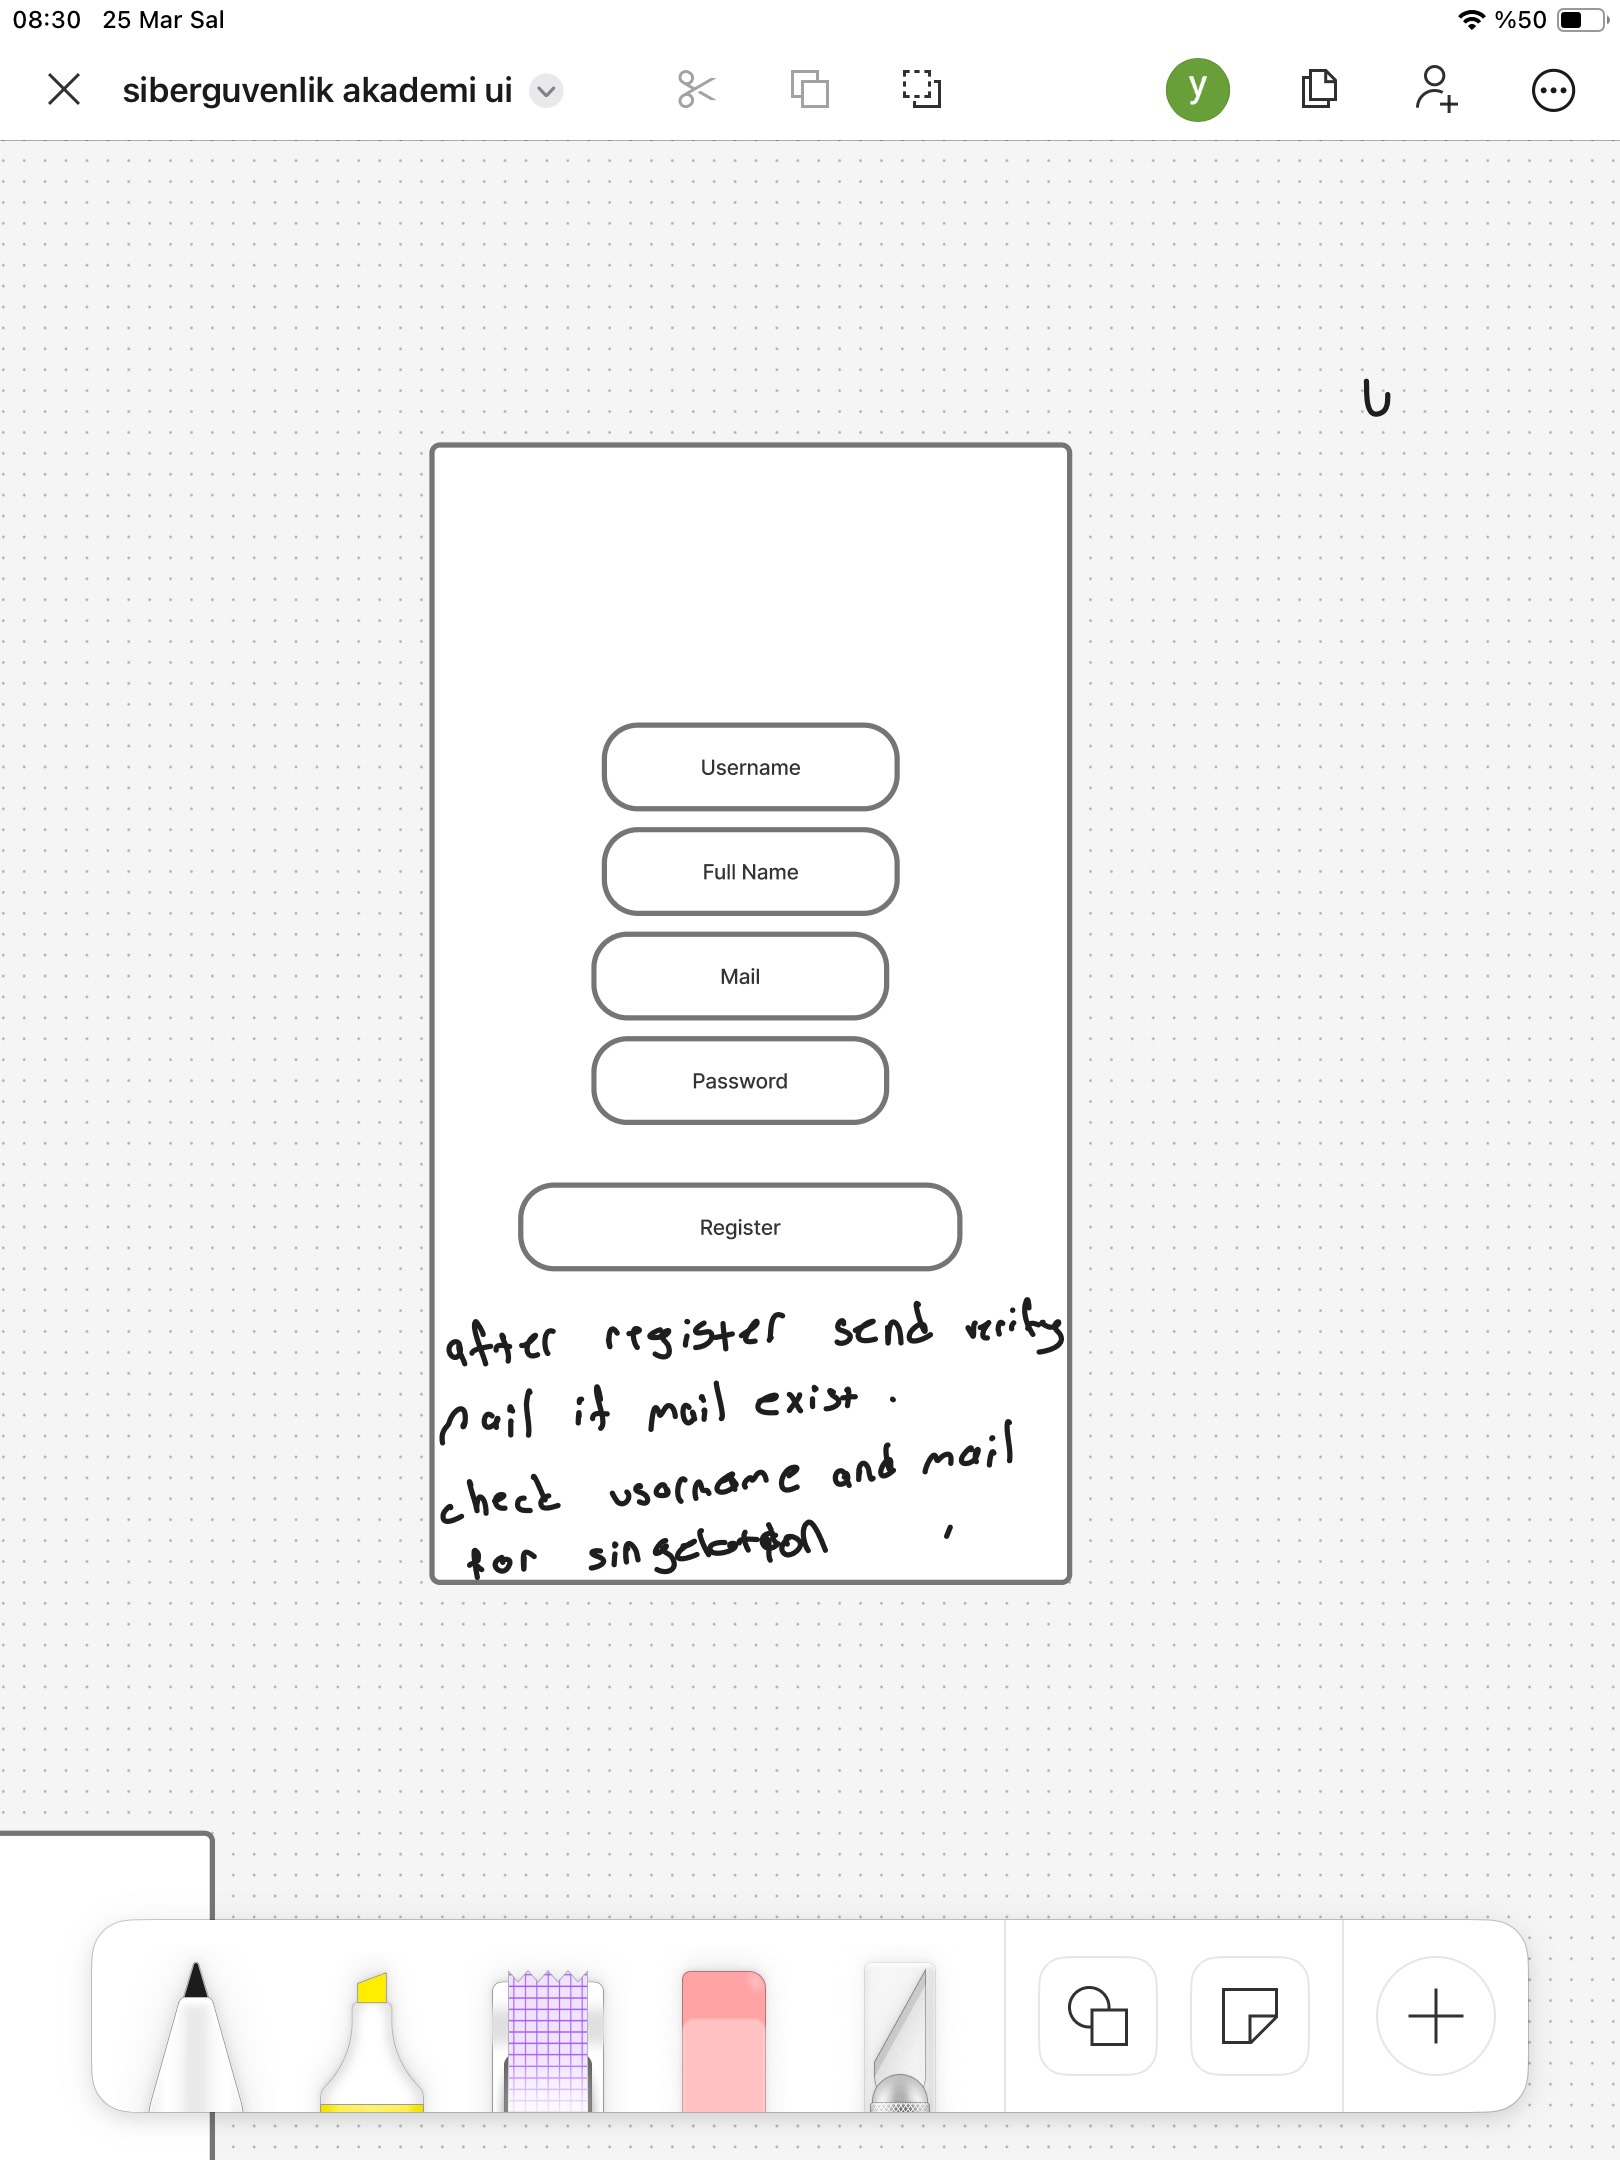 08:30 25 Mar Sal %50
siberguvenlik akademi ui
y
Username
Full Name
Mail
Password
Register
after register send verify
mail if mail exist .
check username and mail
for